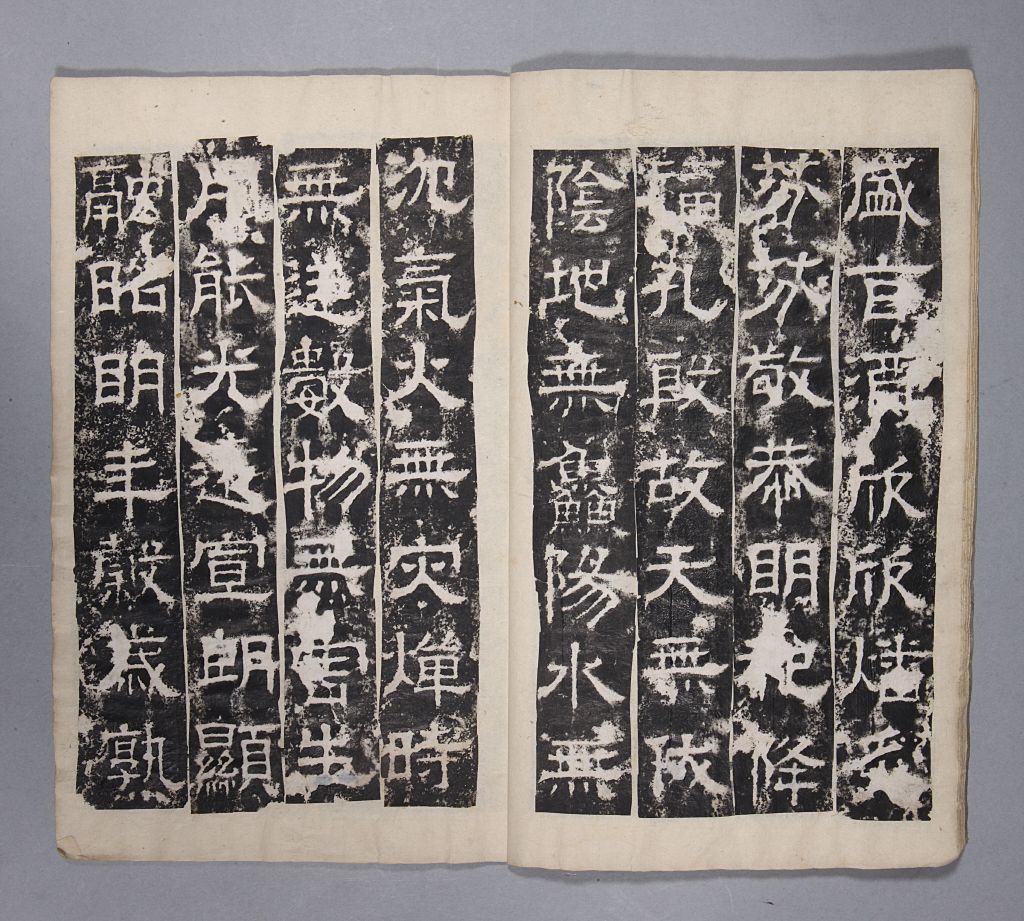 盛旨酒欣欣燔炙
芬芬敬恭明祀降
福孔殷故天無伏
陰地無鱻陽水無
沈氣火無灾燀時
無逆數物無害生
用能光遠宣朗顯
融昭明年穀歲熟